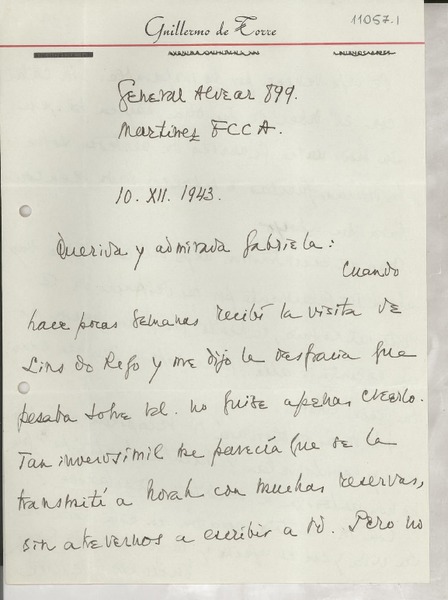 Guillermo de Torre
11057.1
General Alvear 899.
Martinez FCCA.
10. XII. 1943.
Querida y admirada Gabriela:
Cuando
hace pocas semanas recibí la visita de
Lins do Rego y me dijo la desgracia que
pesaba sobre Vd. no quise apenas creerlo.
Tan inverosimil me parecía que se la
transmití a Norah con muchas reservas,
sin atrevernos a escribir a Vd. Pero no